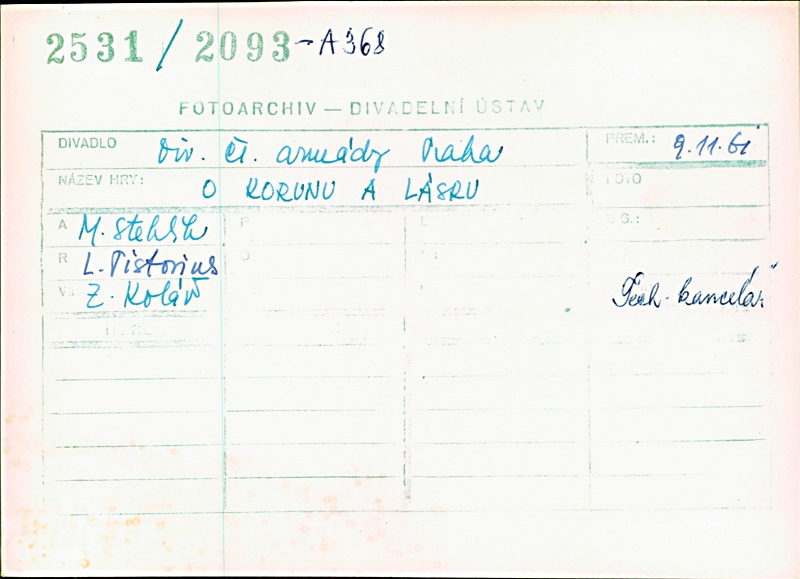 2531 / 2093 - A 368
FOTOARCHIV — DIVADELNÍ ÚSTAV
DIVADLO Div. čs. armády Praha PREM.: 9.11.61
NÁZEV HRY: O KORUNU A LÁSKU FOTO
A M. Stehlík P L G.:
R L. Pistorius O
V: Z. Kolář
Tech. kancelář
HERE